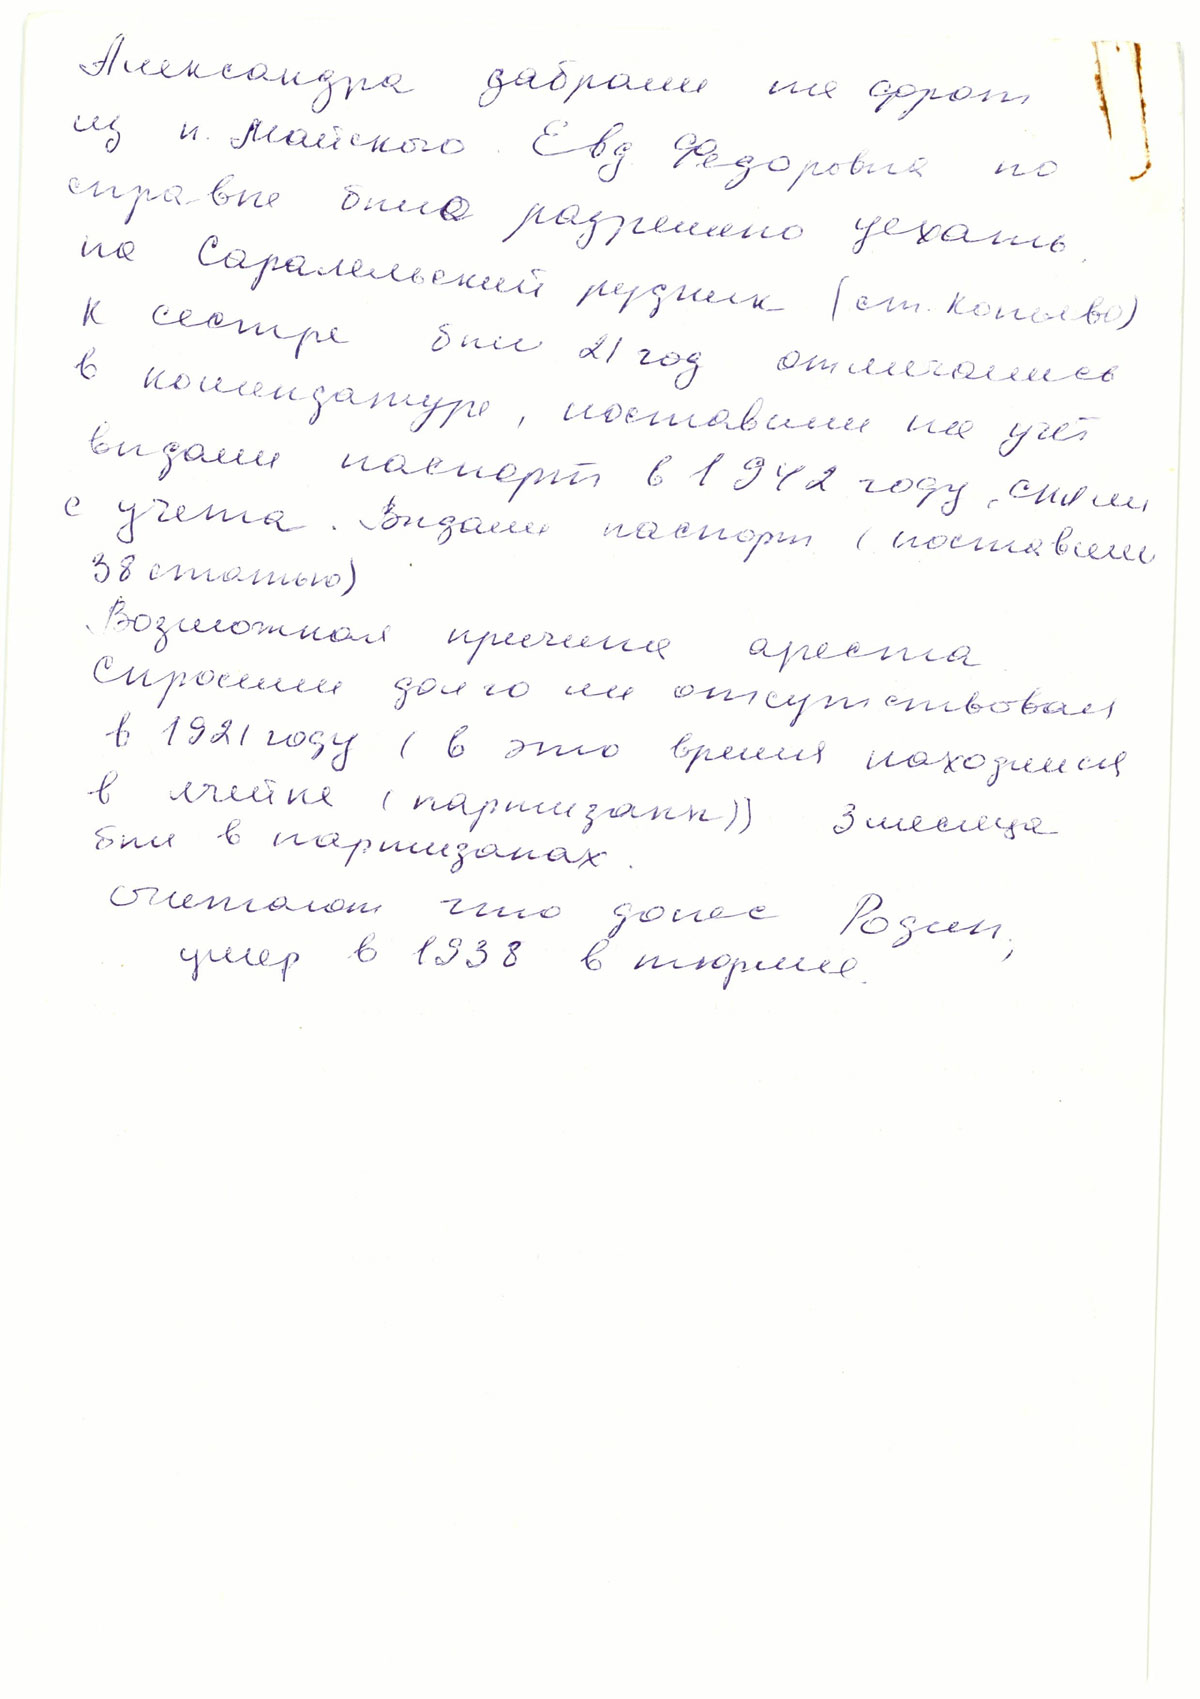 Александра забрали на фронт
из п. Майского. Евд Федоровна по
справке было разрешено уехать
на Саралельский рудник (ст. Копьево)
к сестре был 21 год отмечались
в комендатуре, поставили на учет
выдали паспорт в 1942 году, сняли
с учета. Выдали паспорт (поставили
38 статью)
Возможная причина ареста
Спросили долго ли отсутствовал
в 1921 году (в это время находился
в ячейке (партизанк)) 3 месяца
был в партизанах.
Считают что донес Родин,
умер в 1938 в тюрьме.